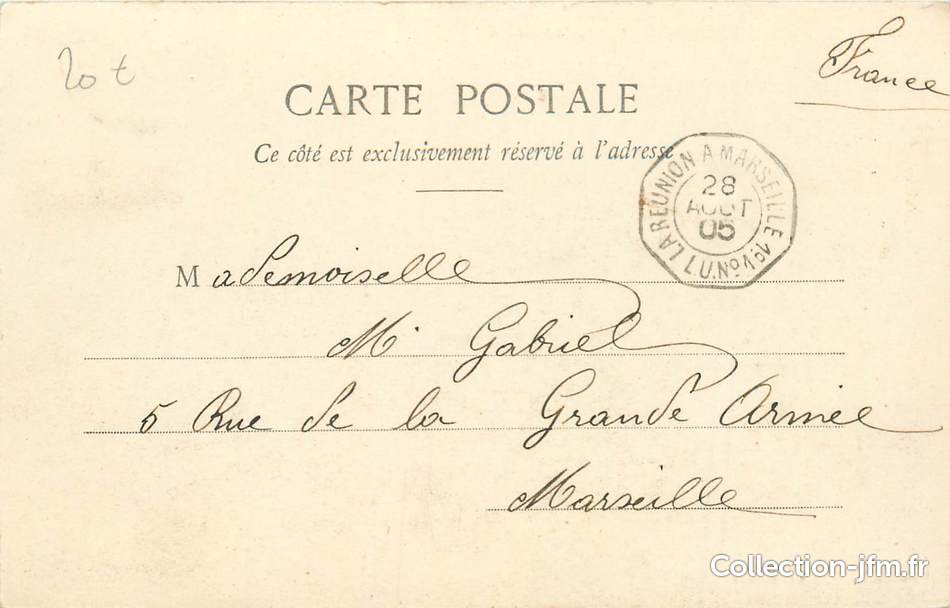 20 t
France
CARTE POSTALE
Ce côté est exclusivement réservé à l'adresse
LA REUNION A MARSEILLE
28
AOUT
05
L.U.N
Mademoiselle
M Gabriel
5 Rue de la Grande Armée
Marseille
Collection-jfm.fr